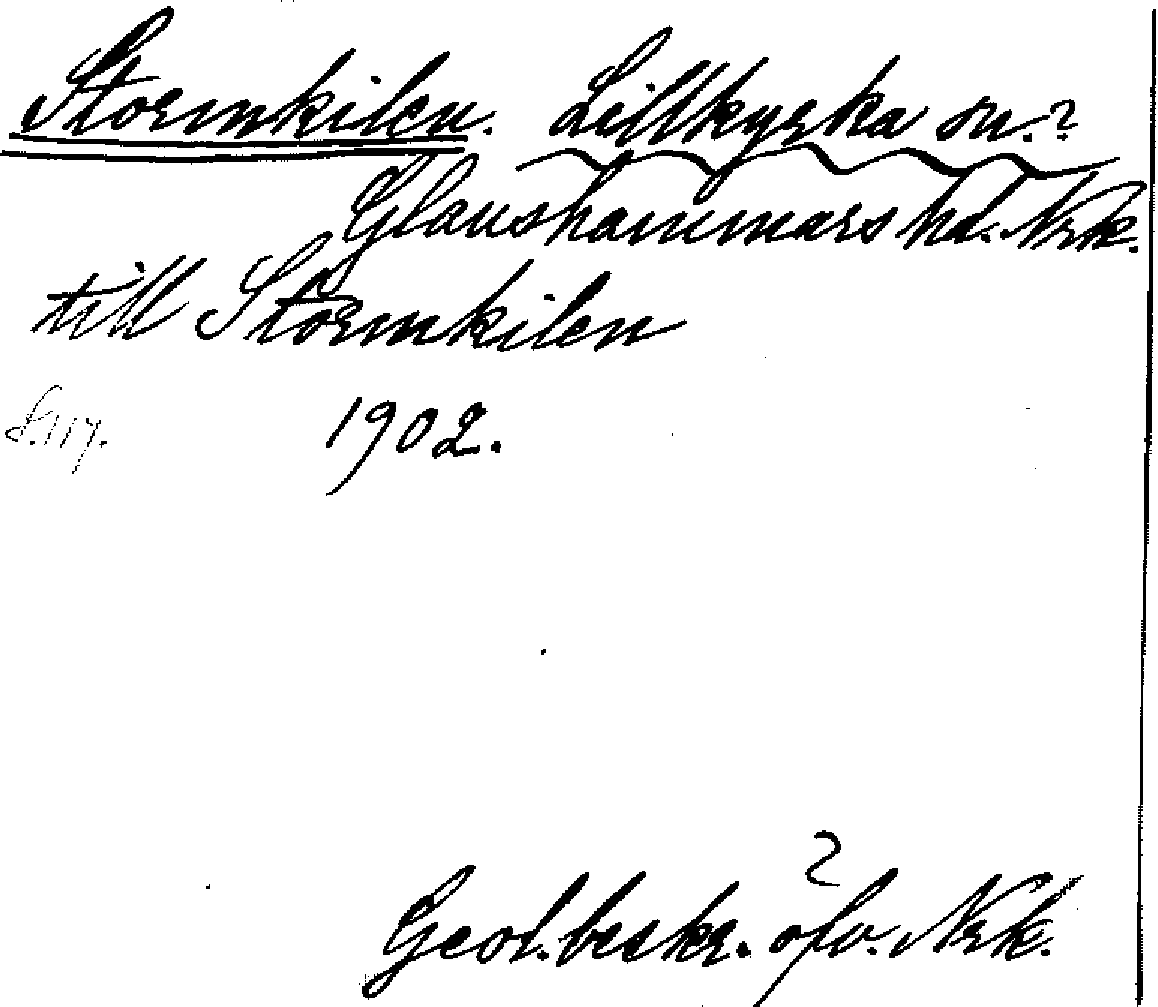 Stormkilen. Lillkyrka sn.?
Glanshammars hd. Nrk.
till Stormkilen
S. 117. 1902.
Geol. beskr. öfv. Nrk.